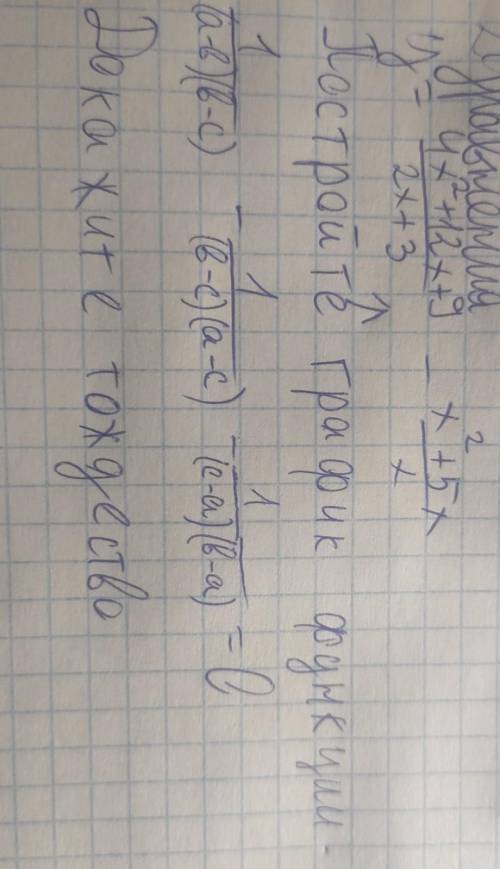 y = (4x²+12x+9)/(2x+3) - (x²+5x)/x
Постройте график функции.
1/((a-b)(b-c)) - 1/((b-c)(a-c)) - 1/((c-a)(b-a)) = 0
Докажите тождество